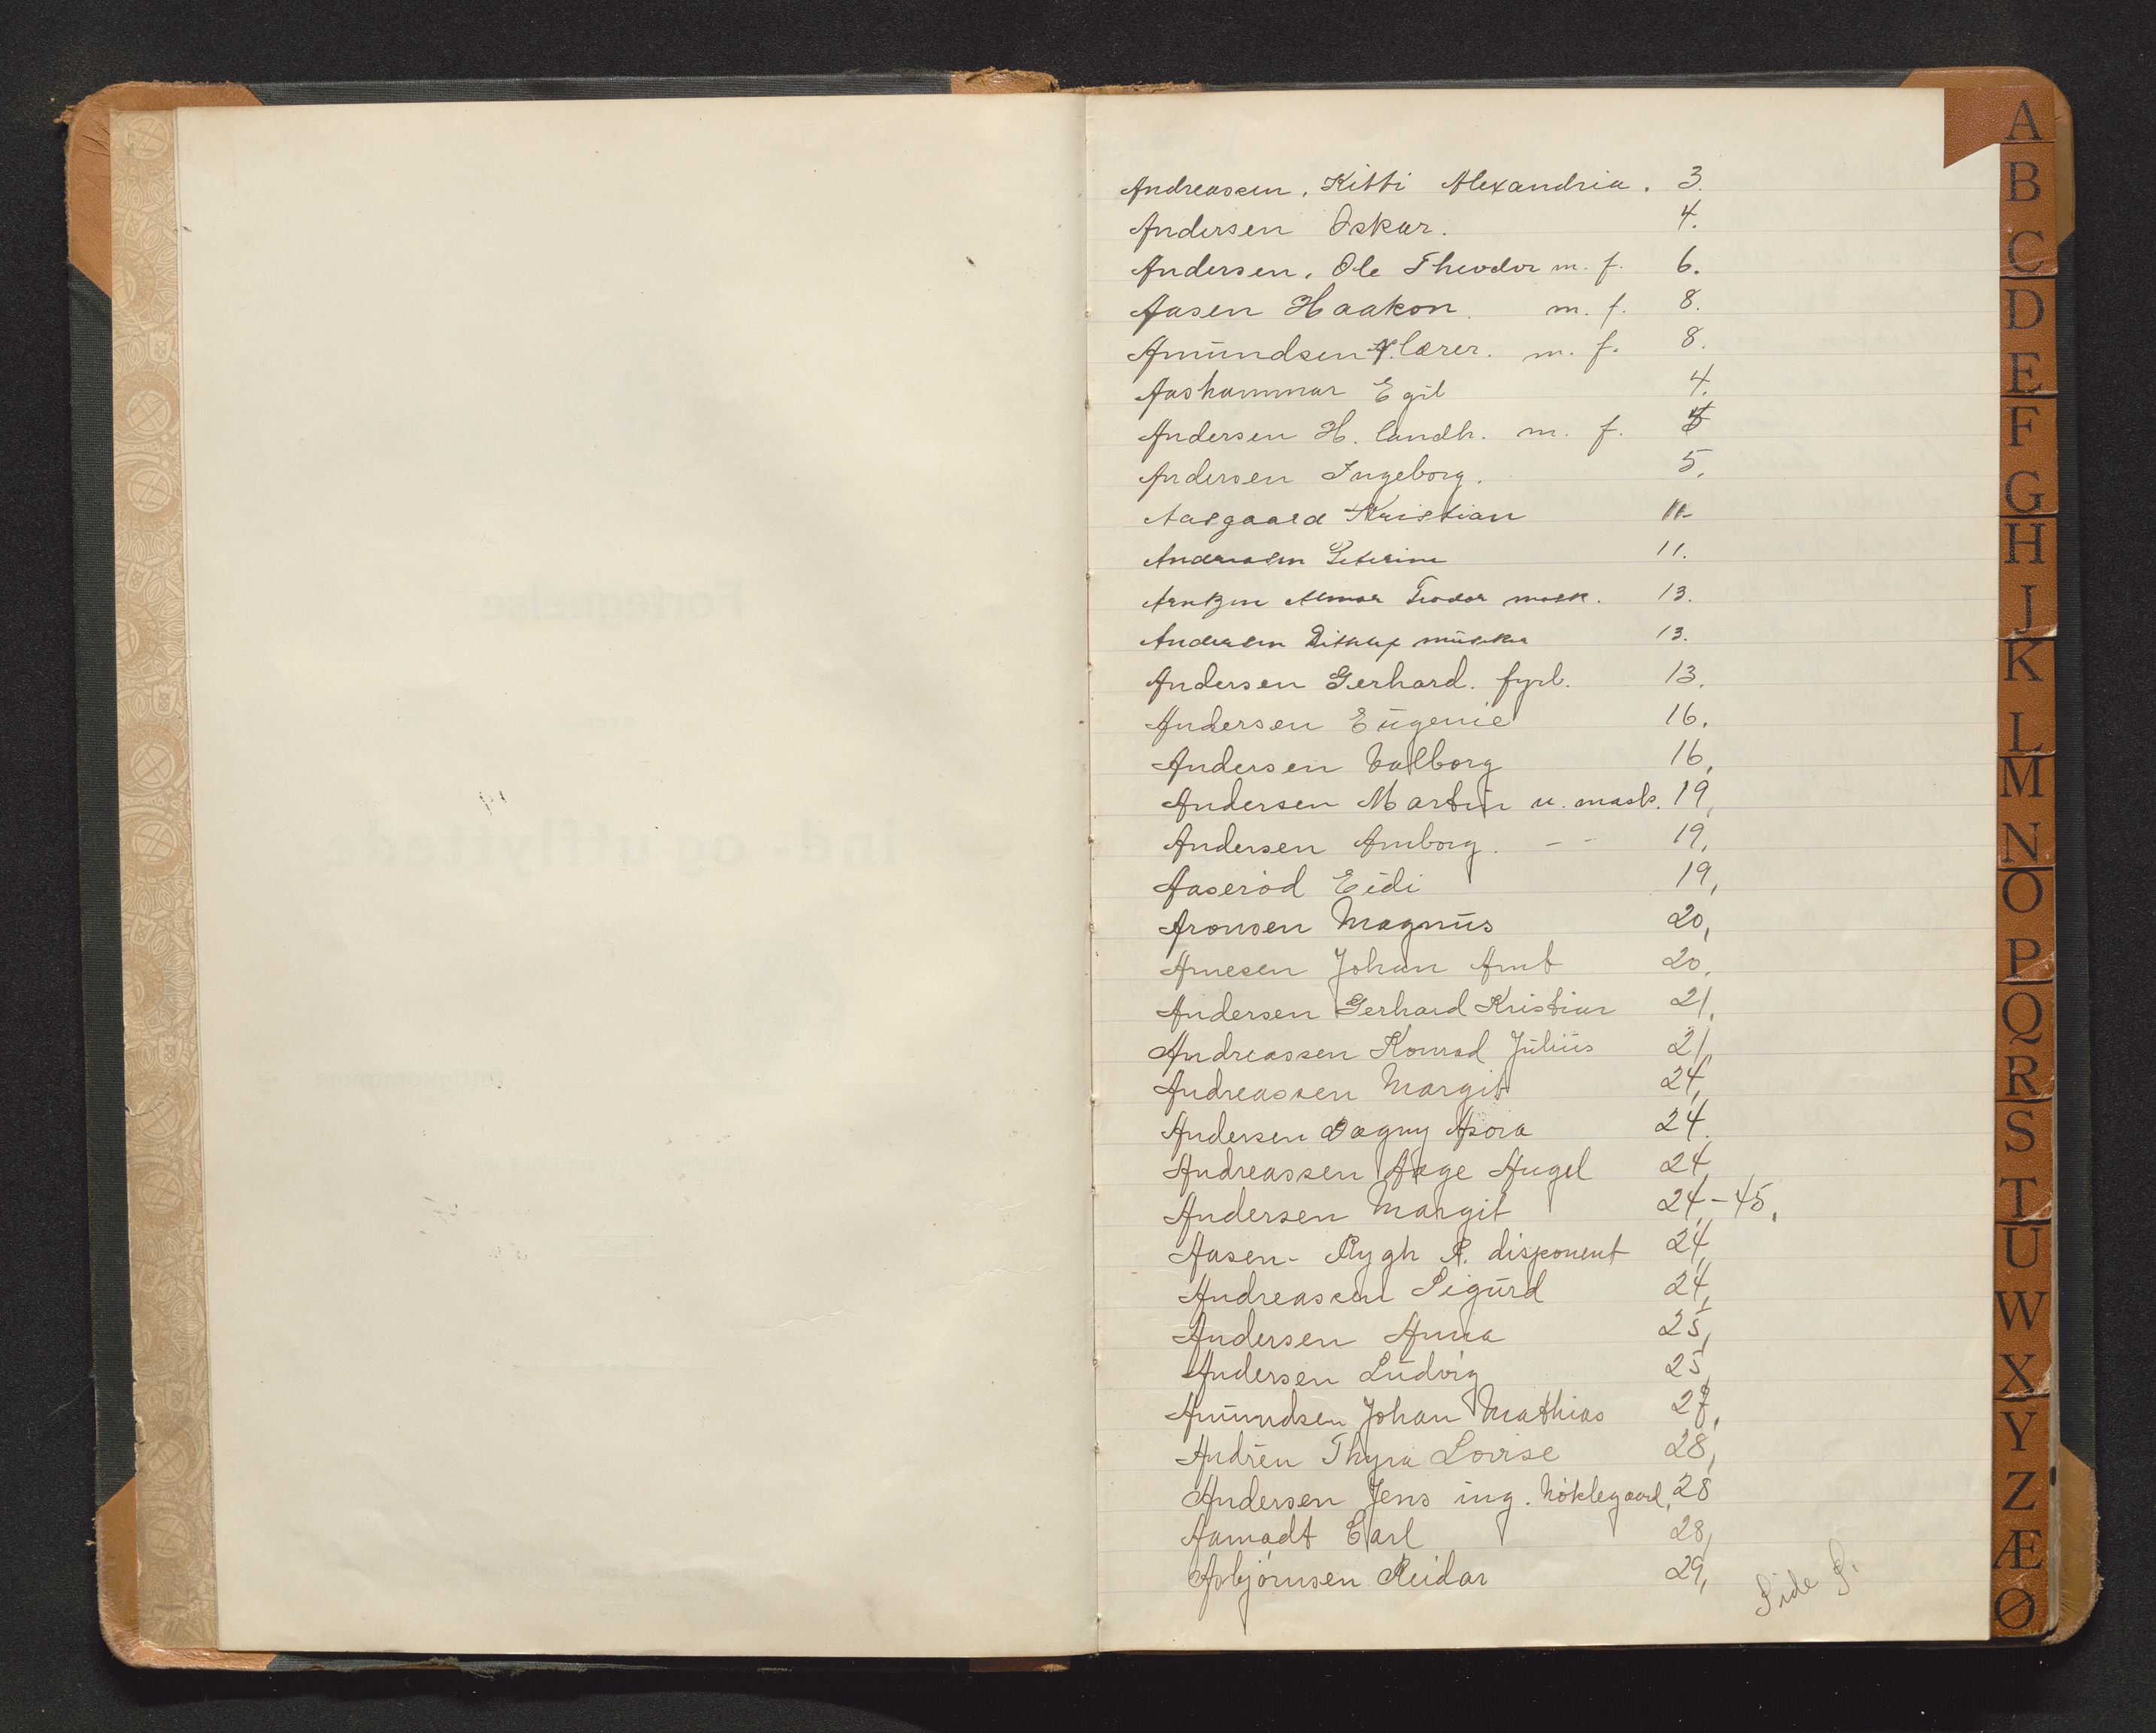 Andreassen, Kitti Alexandria. 3.
Andersen Oskar. 4.
Andersen, Ole Theodor m. f. 6.
Aasen Haakon. m. f. 8.
Amundsen A. lærer. m. f. 8.
Aashammar Egil 4.
Andersen H. landh. m. f.
Andersen Ingeborg. 5.
Aasgaard Kristian 11
Andreasen Peterine 11.
Arntzen Almar Teodor mask. 13.
Andersen musiker 13.
Andersen Gerhard. fyrb. 13.
Andersen Eugenie 16.
Andersen Valborg 16,
Andersen Martin u. mask. 19,
Andersen Amborg. - - 19,
Aaseröd Eidi 19,
Aronsen Magnus 20,
Arnesen Johan Arnt 20.
Andersen Gerhard Kristian 21.
Andreassen Konrad Julius 21
Andreassen Margit 24,
Andersen Dagny Asora 24.
Andreassen Aage Angel 24,
Andersen Margit 24,-45,
Aasen-Rygh R. disponent 24,
Andreassen Sigurd 24,
Andersen Anna 25,
Andersen Ludvig 25,
Amundsen Johan Mathias 27,
Andrén Thyra Lovise 28,
Andersen Jens ing. Nöklegaard, 28
Aamodt Carl 28,
Asbjörnsen Reidar 29,
Side S.
A
B
C
D
E
F
G
H
J
K
L
M
N
O
P
Q
R
S
T
U
W
X
Y
Z
Æ
Ø